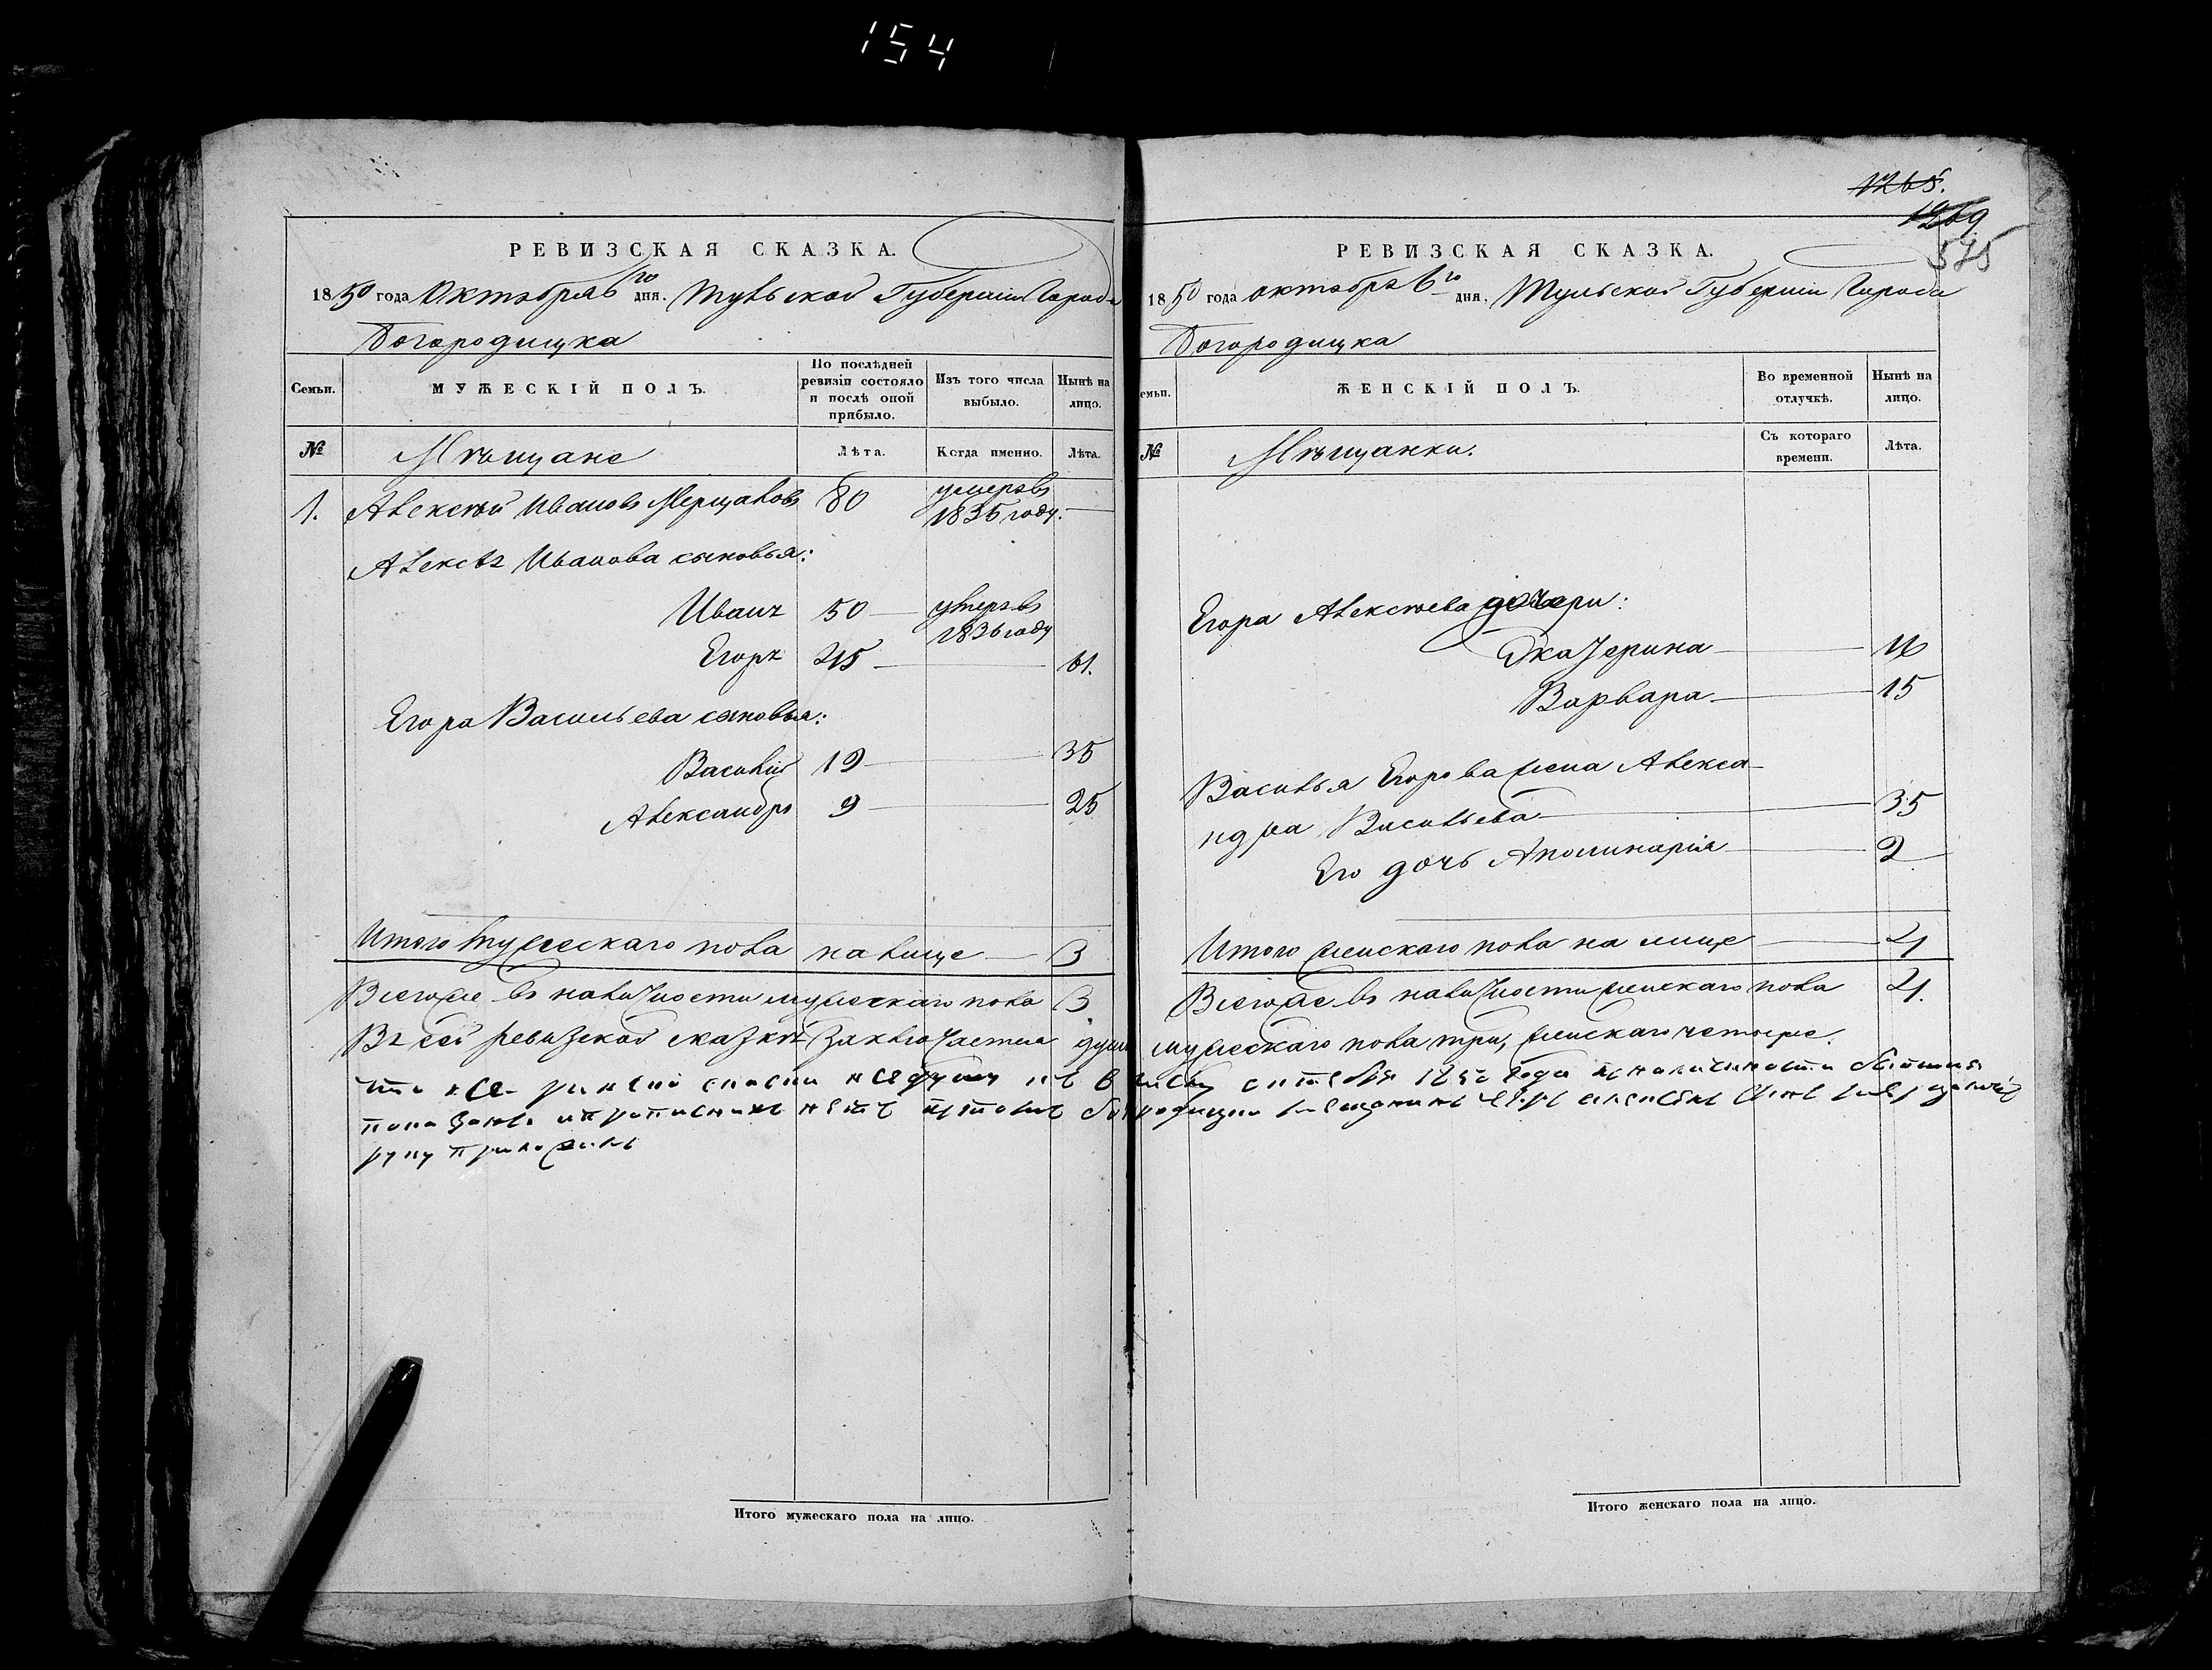 154
1265.
1269
575
РЕВИЗСКАЯ СКАЗКА.
1850 года Октября 6го дня. Тульской Губернии Города
Богородицка
Семьи. МУЖЕСКІЙ ПОЛЪ. По послѣдней ревизіи состояло и послѣ оной прибыло. Изъ того числа выбыло. Нынѣ на лицо.
№ Мѣщане Лѣта. Когда именно. Лѣта.
1. Алексѣй Ивановъ 80 умеръ въ
1835 году.
Иванова сыновья:
Иванъ 50 умеръ въ
1836 году
Егоръ 45 61.
Егора Васильева сыновья:
Василій 19 35
Александръ 9 25
Итого мужескаго пола на лице 3
Всего же въ наличности мужескаго пола 3
РЕВИЗСКАЯ СКАЗКА.
1850 года октября 6го дня. Тульской Губерніи Города
Богородицка
семьи. ЖЕНСКІЙ ПОЛЪ. Во временной отлучкѣ. Нынѣ на лицо.
№ Мѣщанки. Съ котораго времени. Лѣта.
Егора Алексѣева дочери:
Екатерина 16
Варвара 15
Василья Егорова жена Алекса-
ндра Васильева 35
Его дочь Аполинарія 2
Итого женскаго пола на лице 4
Всего же въ наличности женскаго пола 4.
Въ сей ревизской сказкѣ заключается душъ мужескаго пола три, женскаго четыре.
что 1850 года
руку приложилъ
Итого мужескаго пола на лицо.
Итого женскаго пола на лицо.